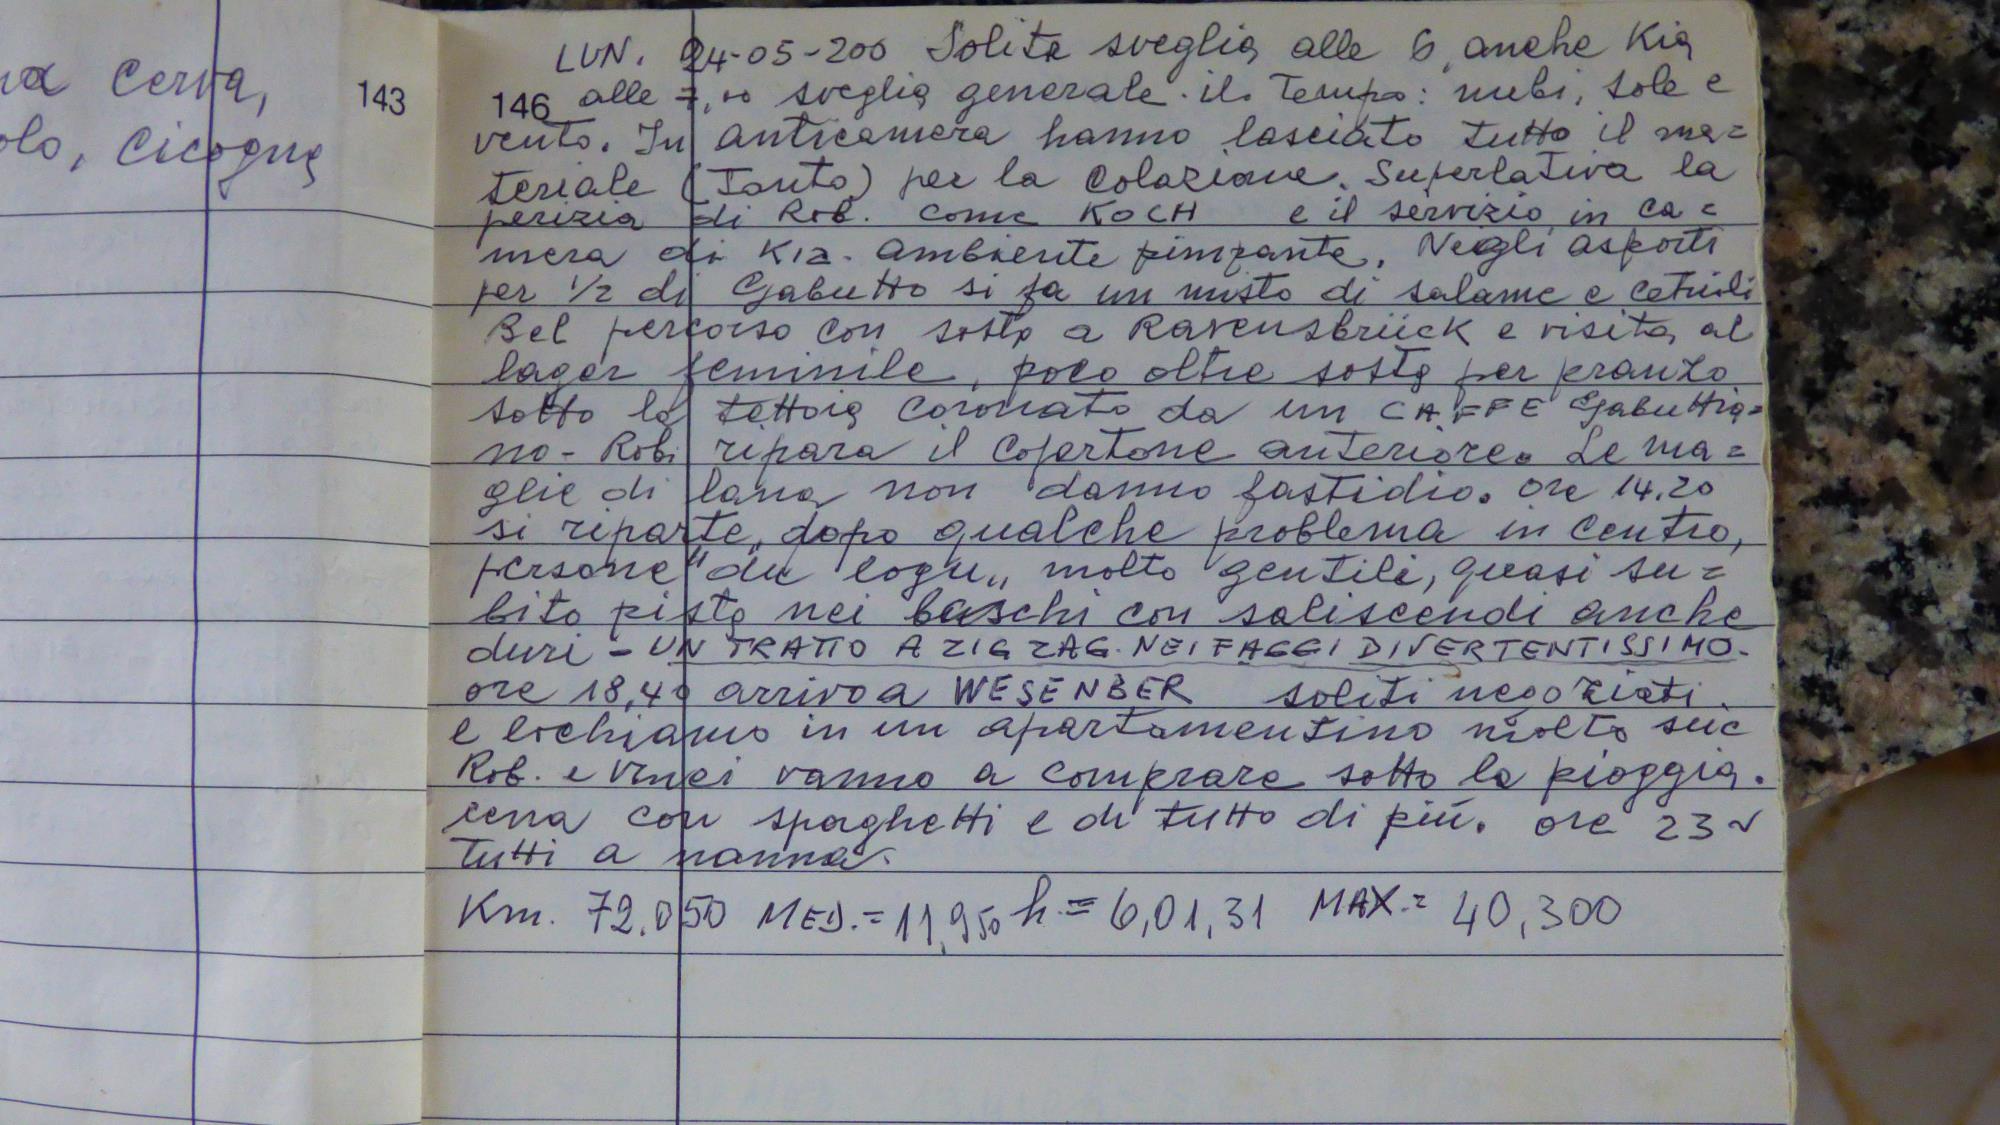 cerva,
143
olo, cicogna
LUN. 24-05-200 Solita sveglia alle 6, anche Kia
146 alle 7,00 sveglia generale. il Tempo: nubi, sole e
vento. In anticamera hanno lasciato tutto il ma=
teriale (Tanto) per la colazione. Superlativa la
perizia di Rob. come KOCH e il servizio in ca=
mera di Kia. Ambiente pimpante. Negli asporti
per 1/2 di Gabutto si fa un misto di salame e cetrioli
Bel percorso con sosta a Ravensbrück e visita al
lager feminile, poco oltre sosta per pranzo
sotto la tettoia coronato da un CAFFE Gabuttia=
no - Robi ripara il copertone anteriore. Le ma=
glie di lana non danno fastidio. Ore 14.20
si riparte, dopo qualche problema in centro,
persone "du logu" molto gentili, quasi su=
bito pista nei boschi con saliscendi anche
duri - UN TRATTO A ZIG ZAG NEI FAGGI DIVERTENTISSIMO.
ore 18,40 arrivo a WESENBER soliti negoziati
e lochiamo in un apartamentino molto suc
Rob. e Vinci vanno a comprare sotto la pioggia.
cena con spaghetti e di tutto di più. ore 23
tutti a nanna.
Km. 72.050 MED.= 11,950 h.= 6,01,31 MAX.= 40,300